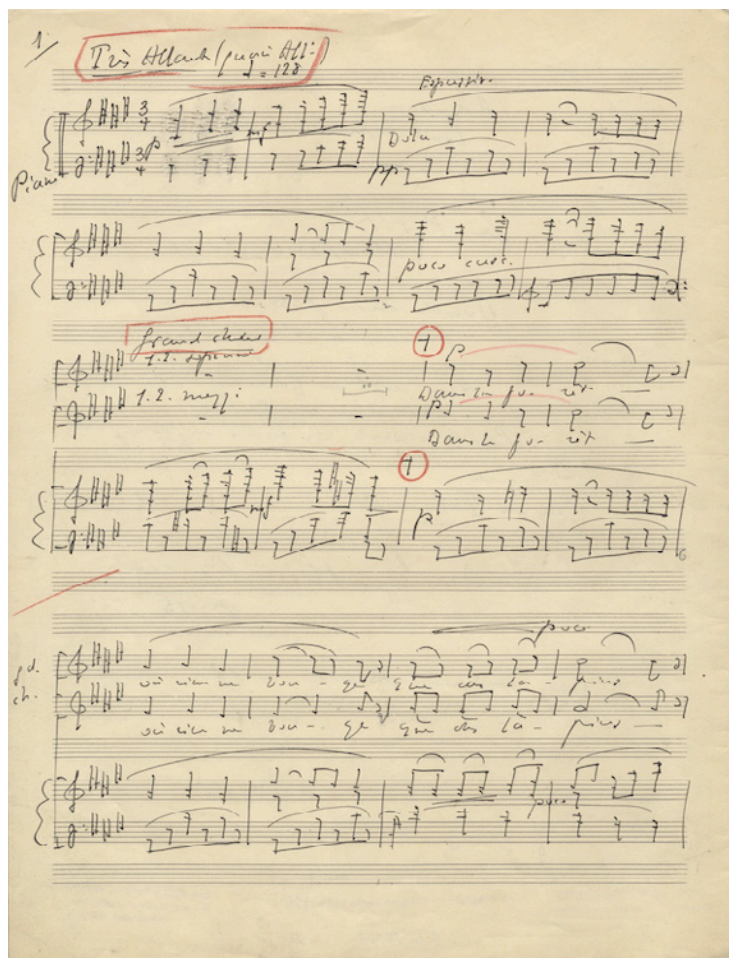 1
Très Allant (quasi All:)
♩ = 128
Expressif.
3 4
p
mf
Dolce
Piano
3 4
pp
poco cresc.
Grand chœur
1.2. soprani
1
p
1.2. mezzi
Dans la fo- rêt
p
Dans la fo- rêt
1
mf
p
6
poco
gd.
ch.
où rien ne bou- ge que les la- pins
où rien ne bou- ge que des la- pins
poco